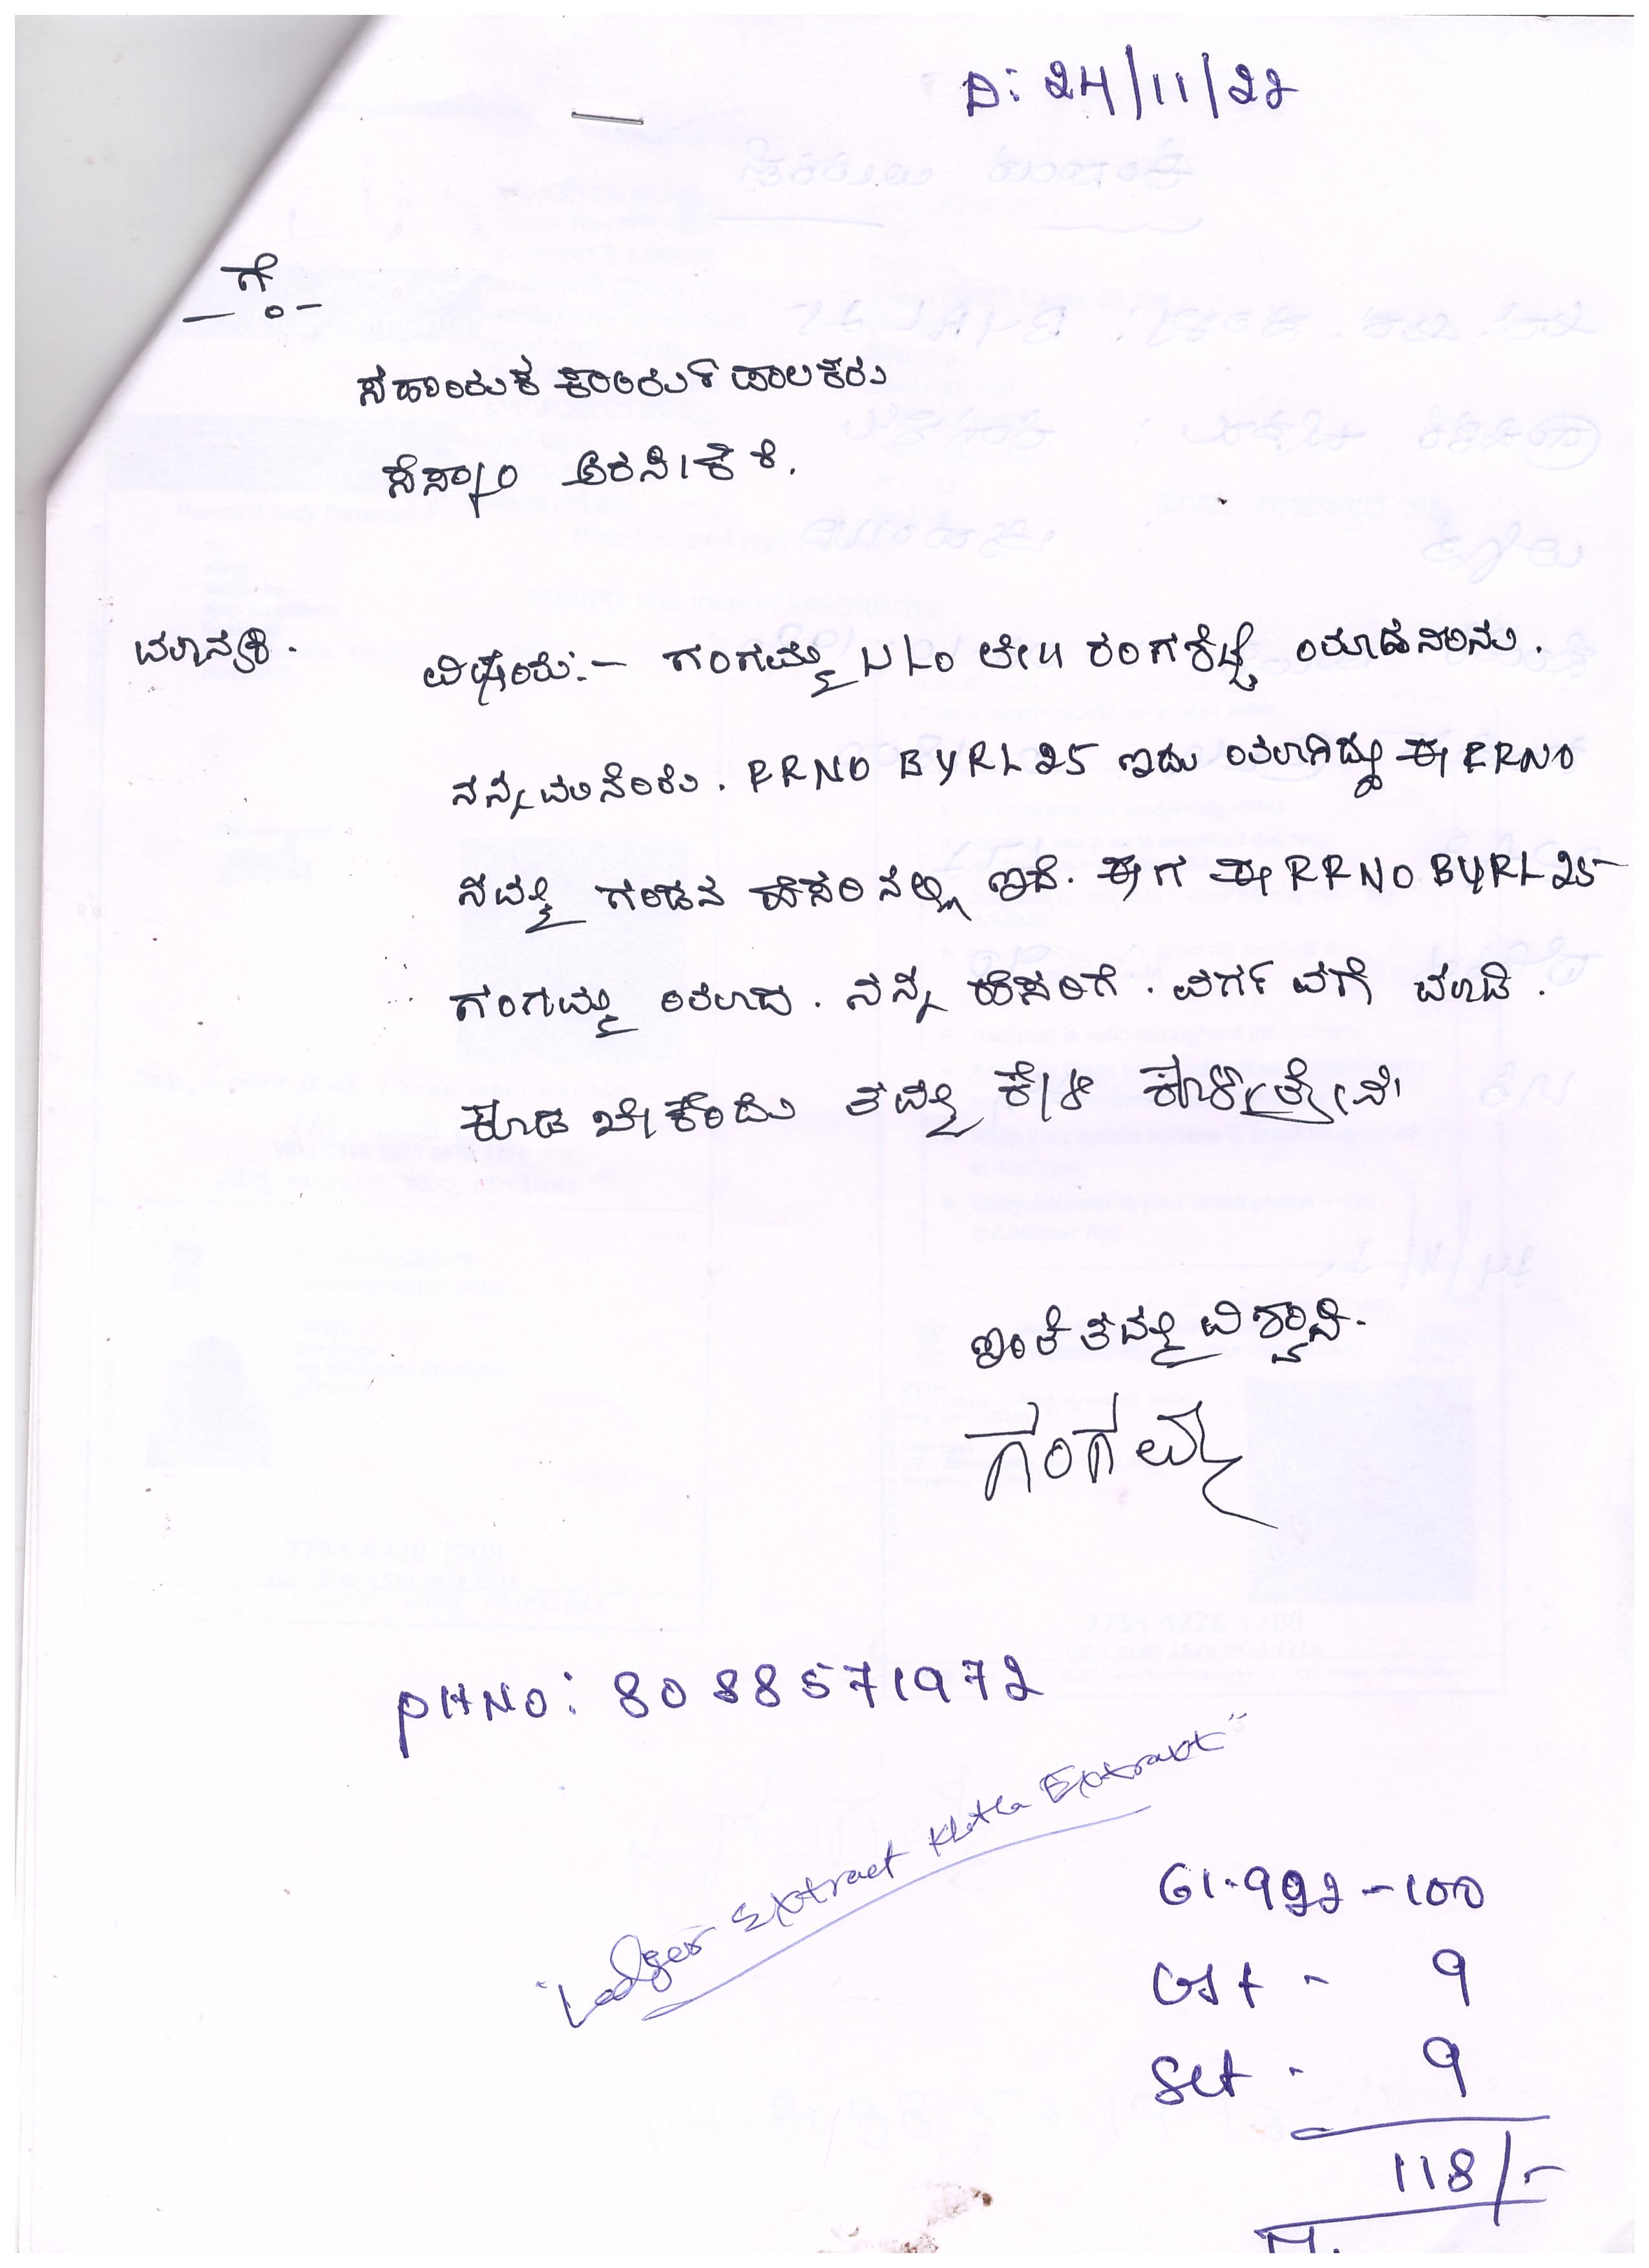 D: 24/11/22
ಗೆ
ಸಹಾಯಕ ಕಾರ್ಯಪಾಲಕರು
ಸೆಸ್ಕಾಂ ಅರಸೀಕೆರೆ.
ಮಾನ್ಯರೆ. ವಿಷಯ:- ಗಂಗಮ್ಮ ಲೇ॥ ರಂಗಶೆಟ್ಟಿ
ನನ್ನ ಮನೆಯ. RRNO BYRL25 ಇದು ಈ RRNO
ನಮ್ಮ ಗಂಡನ ಹೆಸರಿನಲ್ಲಿ ಇದೆ. ಈಗ ಈ RRNO BYRL25
ಗಂಗಮ್ಮ ಯಾದ. ನನ್ನ ಹೆಸರಿಗೆ. ವರ್ಗವಣೆ ಮಾಡಿ.
ಕೂಡಬೇಕೆಂದು ತಮ್ಮಲ್ಲಿ ಕೇಳಿ ಕೊಳ್ಳುತ್ತೇವೆ
ಇಂತಿ ತಮ್ಮ ವಿಶ್ವಾಸಿ.
ಗಂಗಮ್ಮ
PHNO: 8088571972
"Ledger Extract Khatha Extract"
61.992 - 100
Cgst - 9
Sgt - 9
118/-